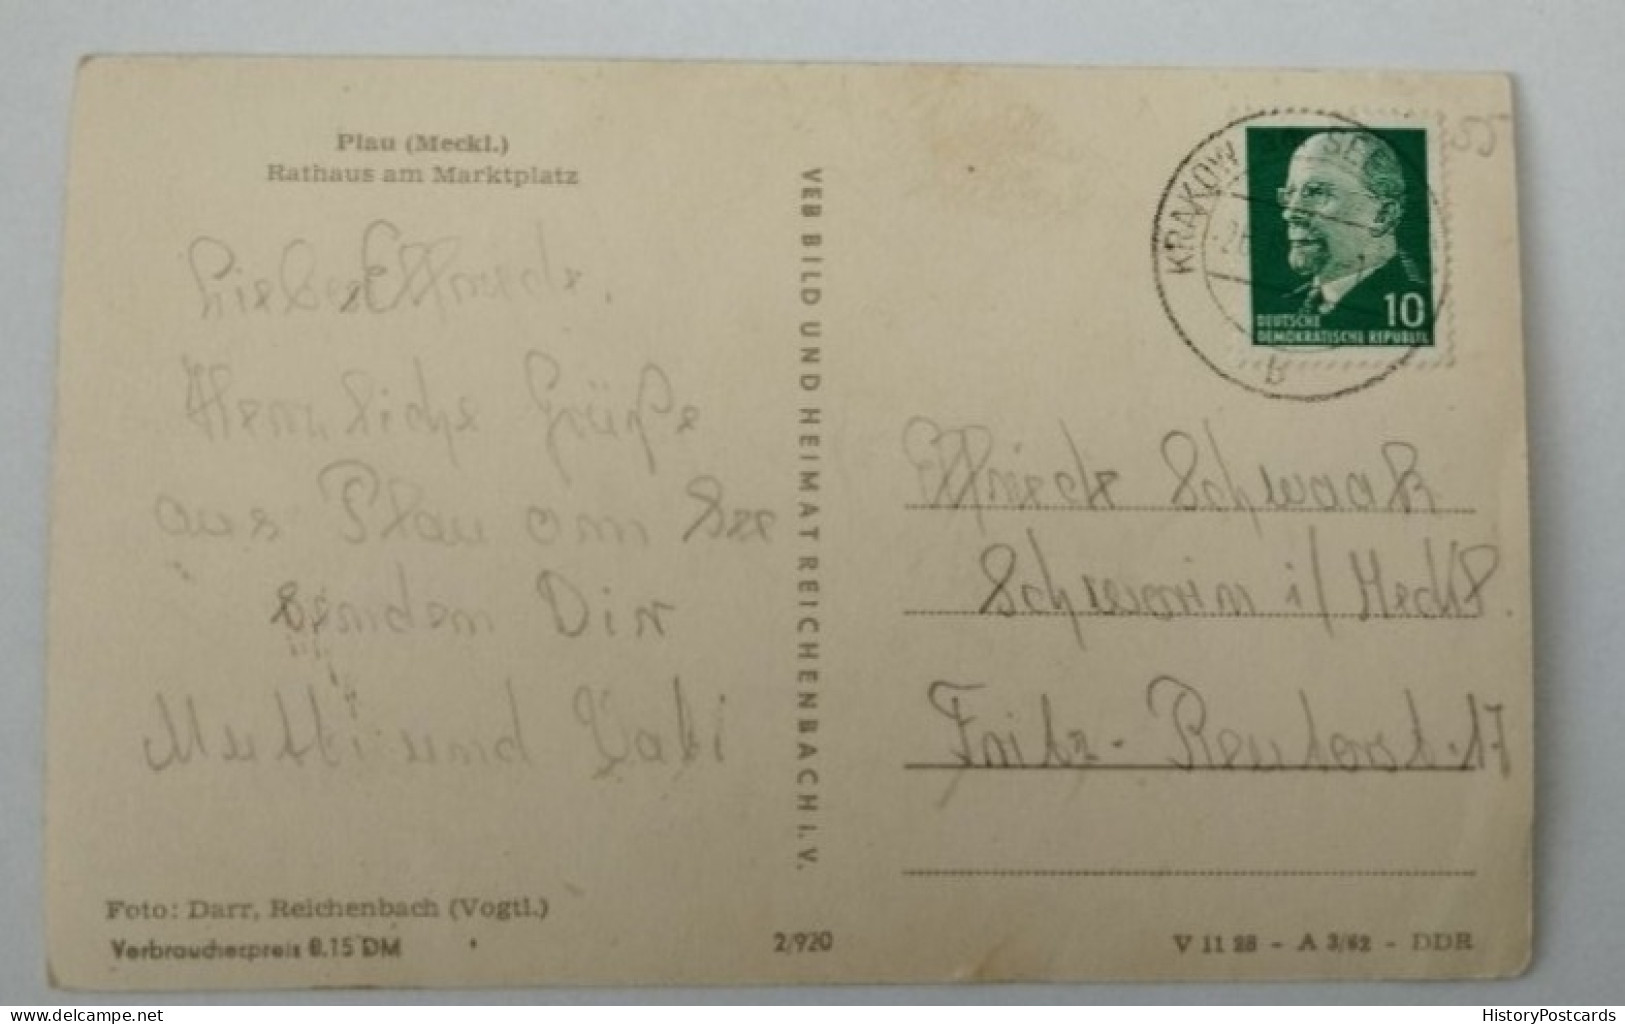 Plau (Meckl.)
Rathaus am Marktplatz
Liebe Elfriede.
Herzliche Grüße
aus Plau am See
senden Dir
Mutti und Vati
Foto: Darr, Reichenbach (Vogtl.)
Verbraucherpreis 0.15 DM
VEB BILD UND HEIMAT REICHENBACH I. V.
2/920
KRAKOW AM SEE
10
DEUTSCHE
DEMOKRATISCHE REPUBLIK
55
Elfriede Schwaak
Schwerin i/Meckl.
Fritz-Reuterst. 17
V 11 28 - A 3/62 - DDR
HistoryPostcards
delcampe.net